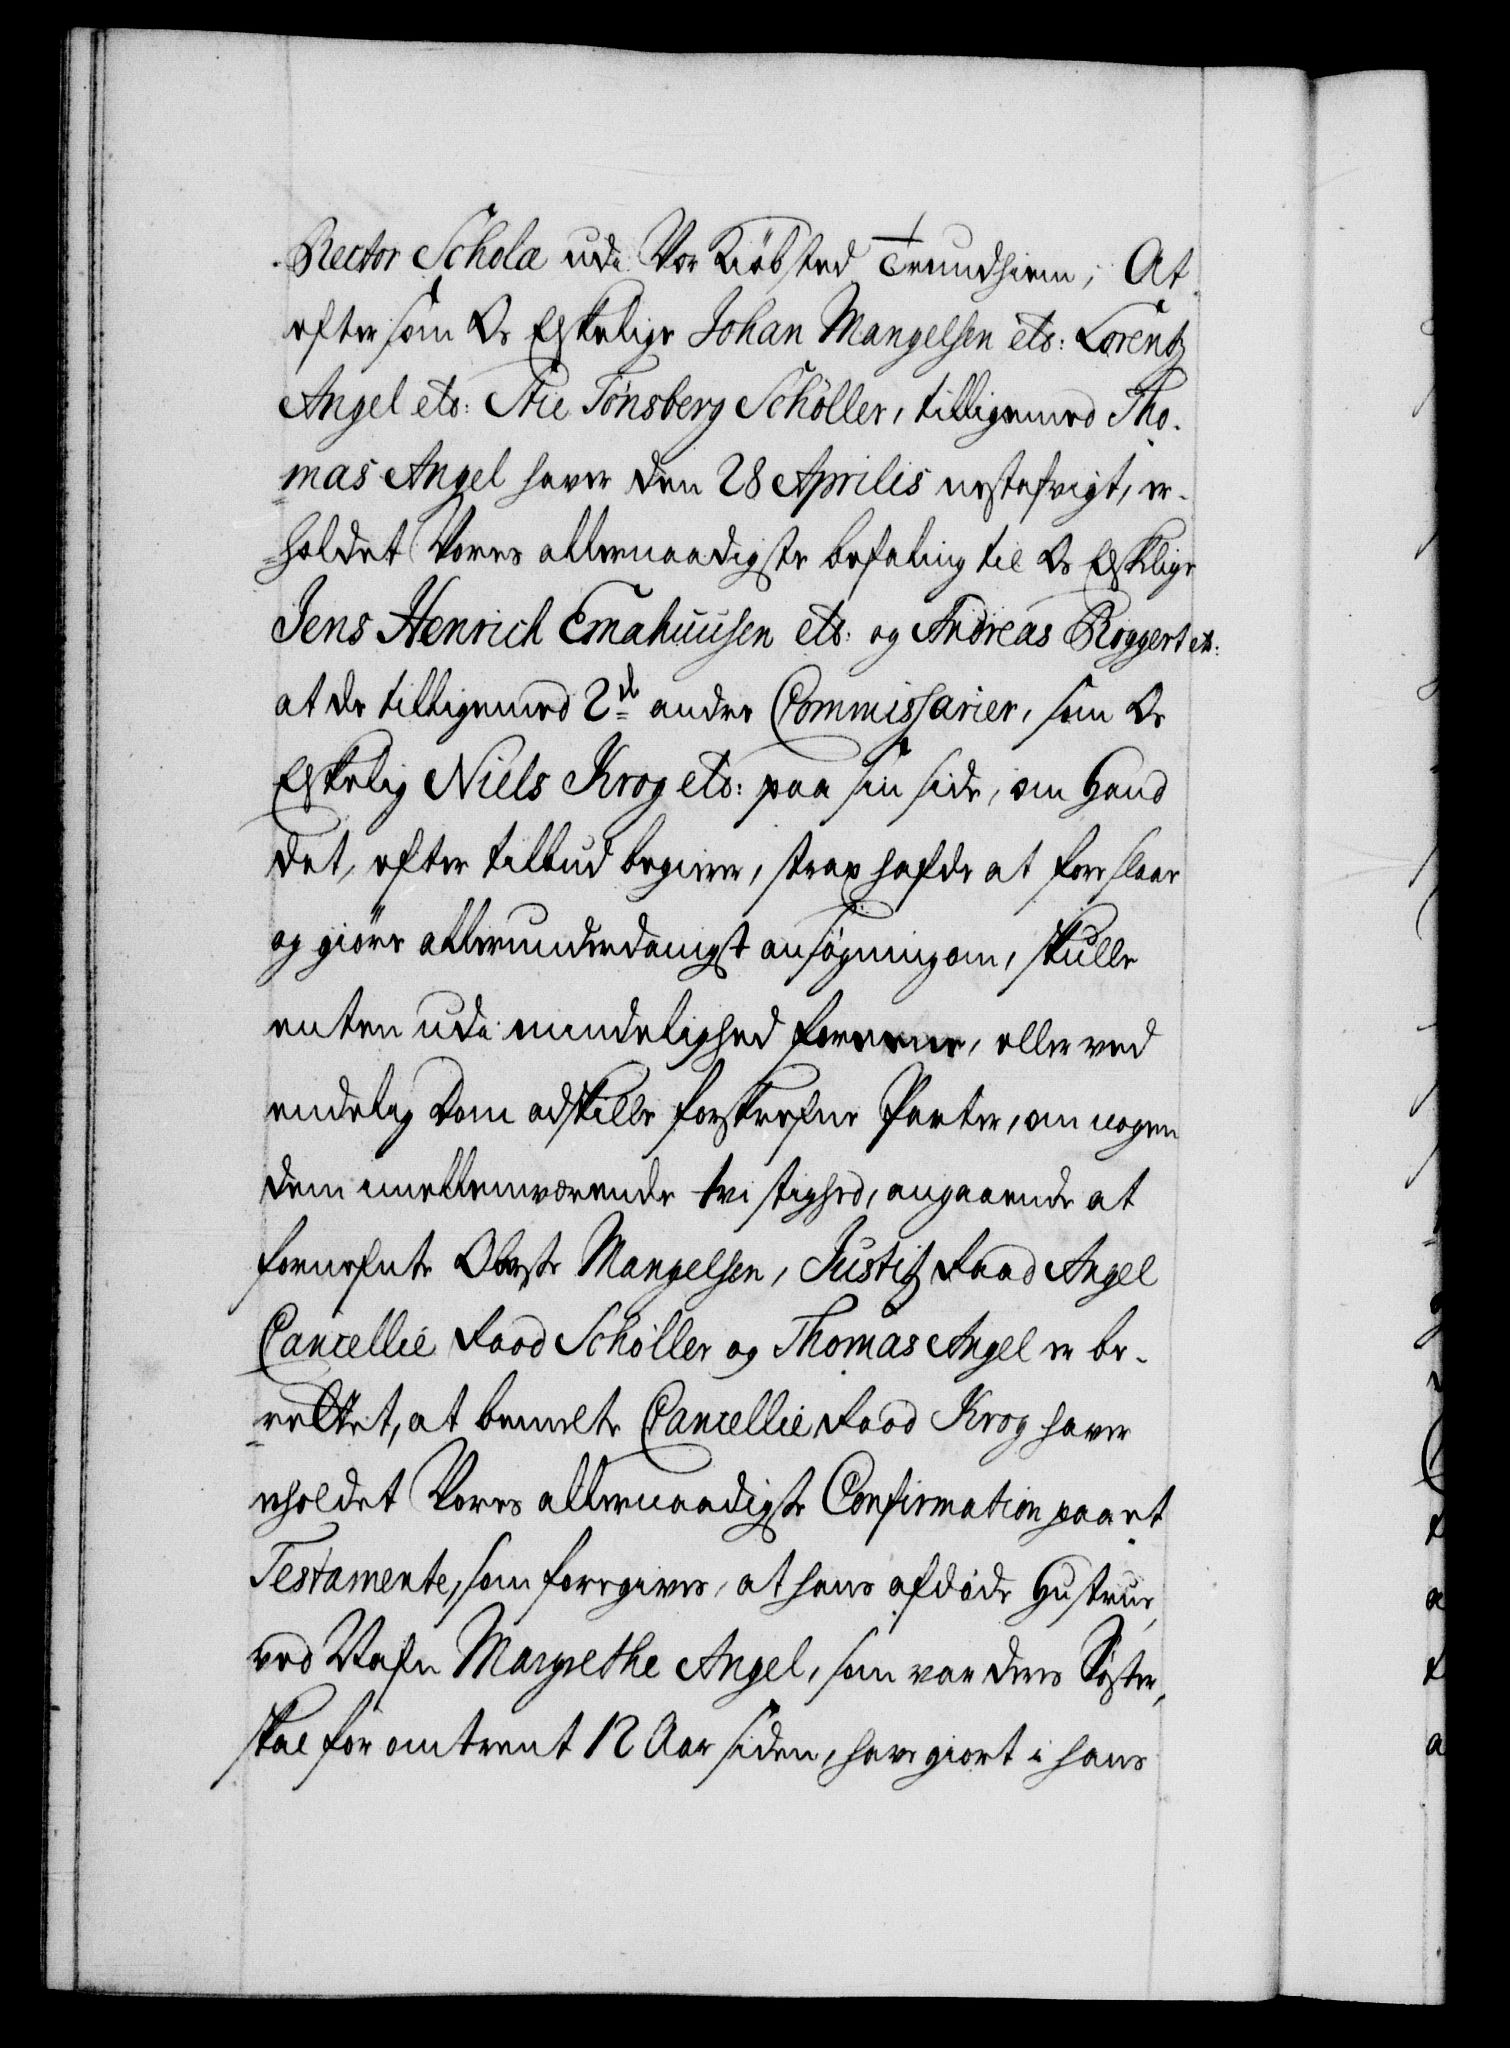 Rector Scholæ udi Vor Kiöbsted Trundhiem; At
eftersom Os Elskelige Johan Mangelsen etc: Lorentz
Angel etc: Stie Tönsberg Schöller, tilligemed Tho-
mas Angel haver den 28 Aprilis nestafvigt, er-
holdet Vores allernaadigste befaling til Os Elskelige
Jens Henrich Emahuusen etc: og Andreas Roggert etc:
at de tilligemed 2de andre Commissarier, som Os
Elskelig Niels Krog etc: paa sin side, om Hand
det, efter tilbud begierer, strax hafde at foreslaae
og giöre allerunderdanigst ansögning om, skulle
enten udi mindelighed foreene, eller ved
endelig Dom adskille forskrefne Parter, om nogen
dem imellemværende tvistighed, angaaende at
fornefnte Oberste Mangelsen, Justitz Raad Angel
Cancellie Raad Schöller og Thomas Angel er be-
rettet, at bemelte Cancellie Raad Krog haver
erholdet Vores allernaadigste Confirmation paa et
Testamente, som foregives, at hans afdöde Hustrue,
ved Nafn Margrethe Angel, som var deres Söster,
skal for omtrent 12 Aar siden, have giort i hans